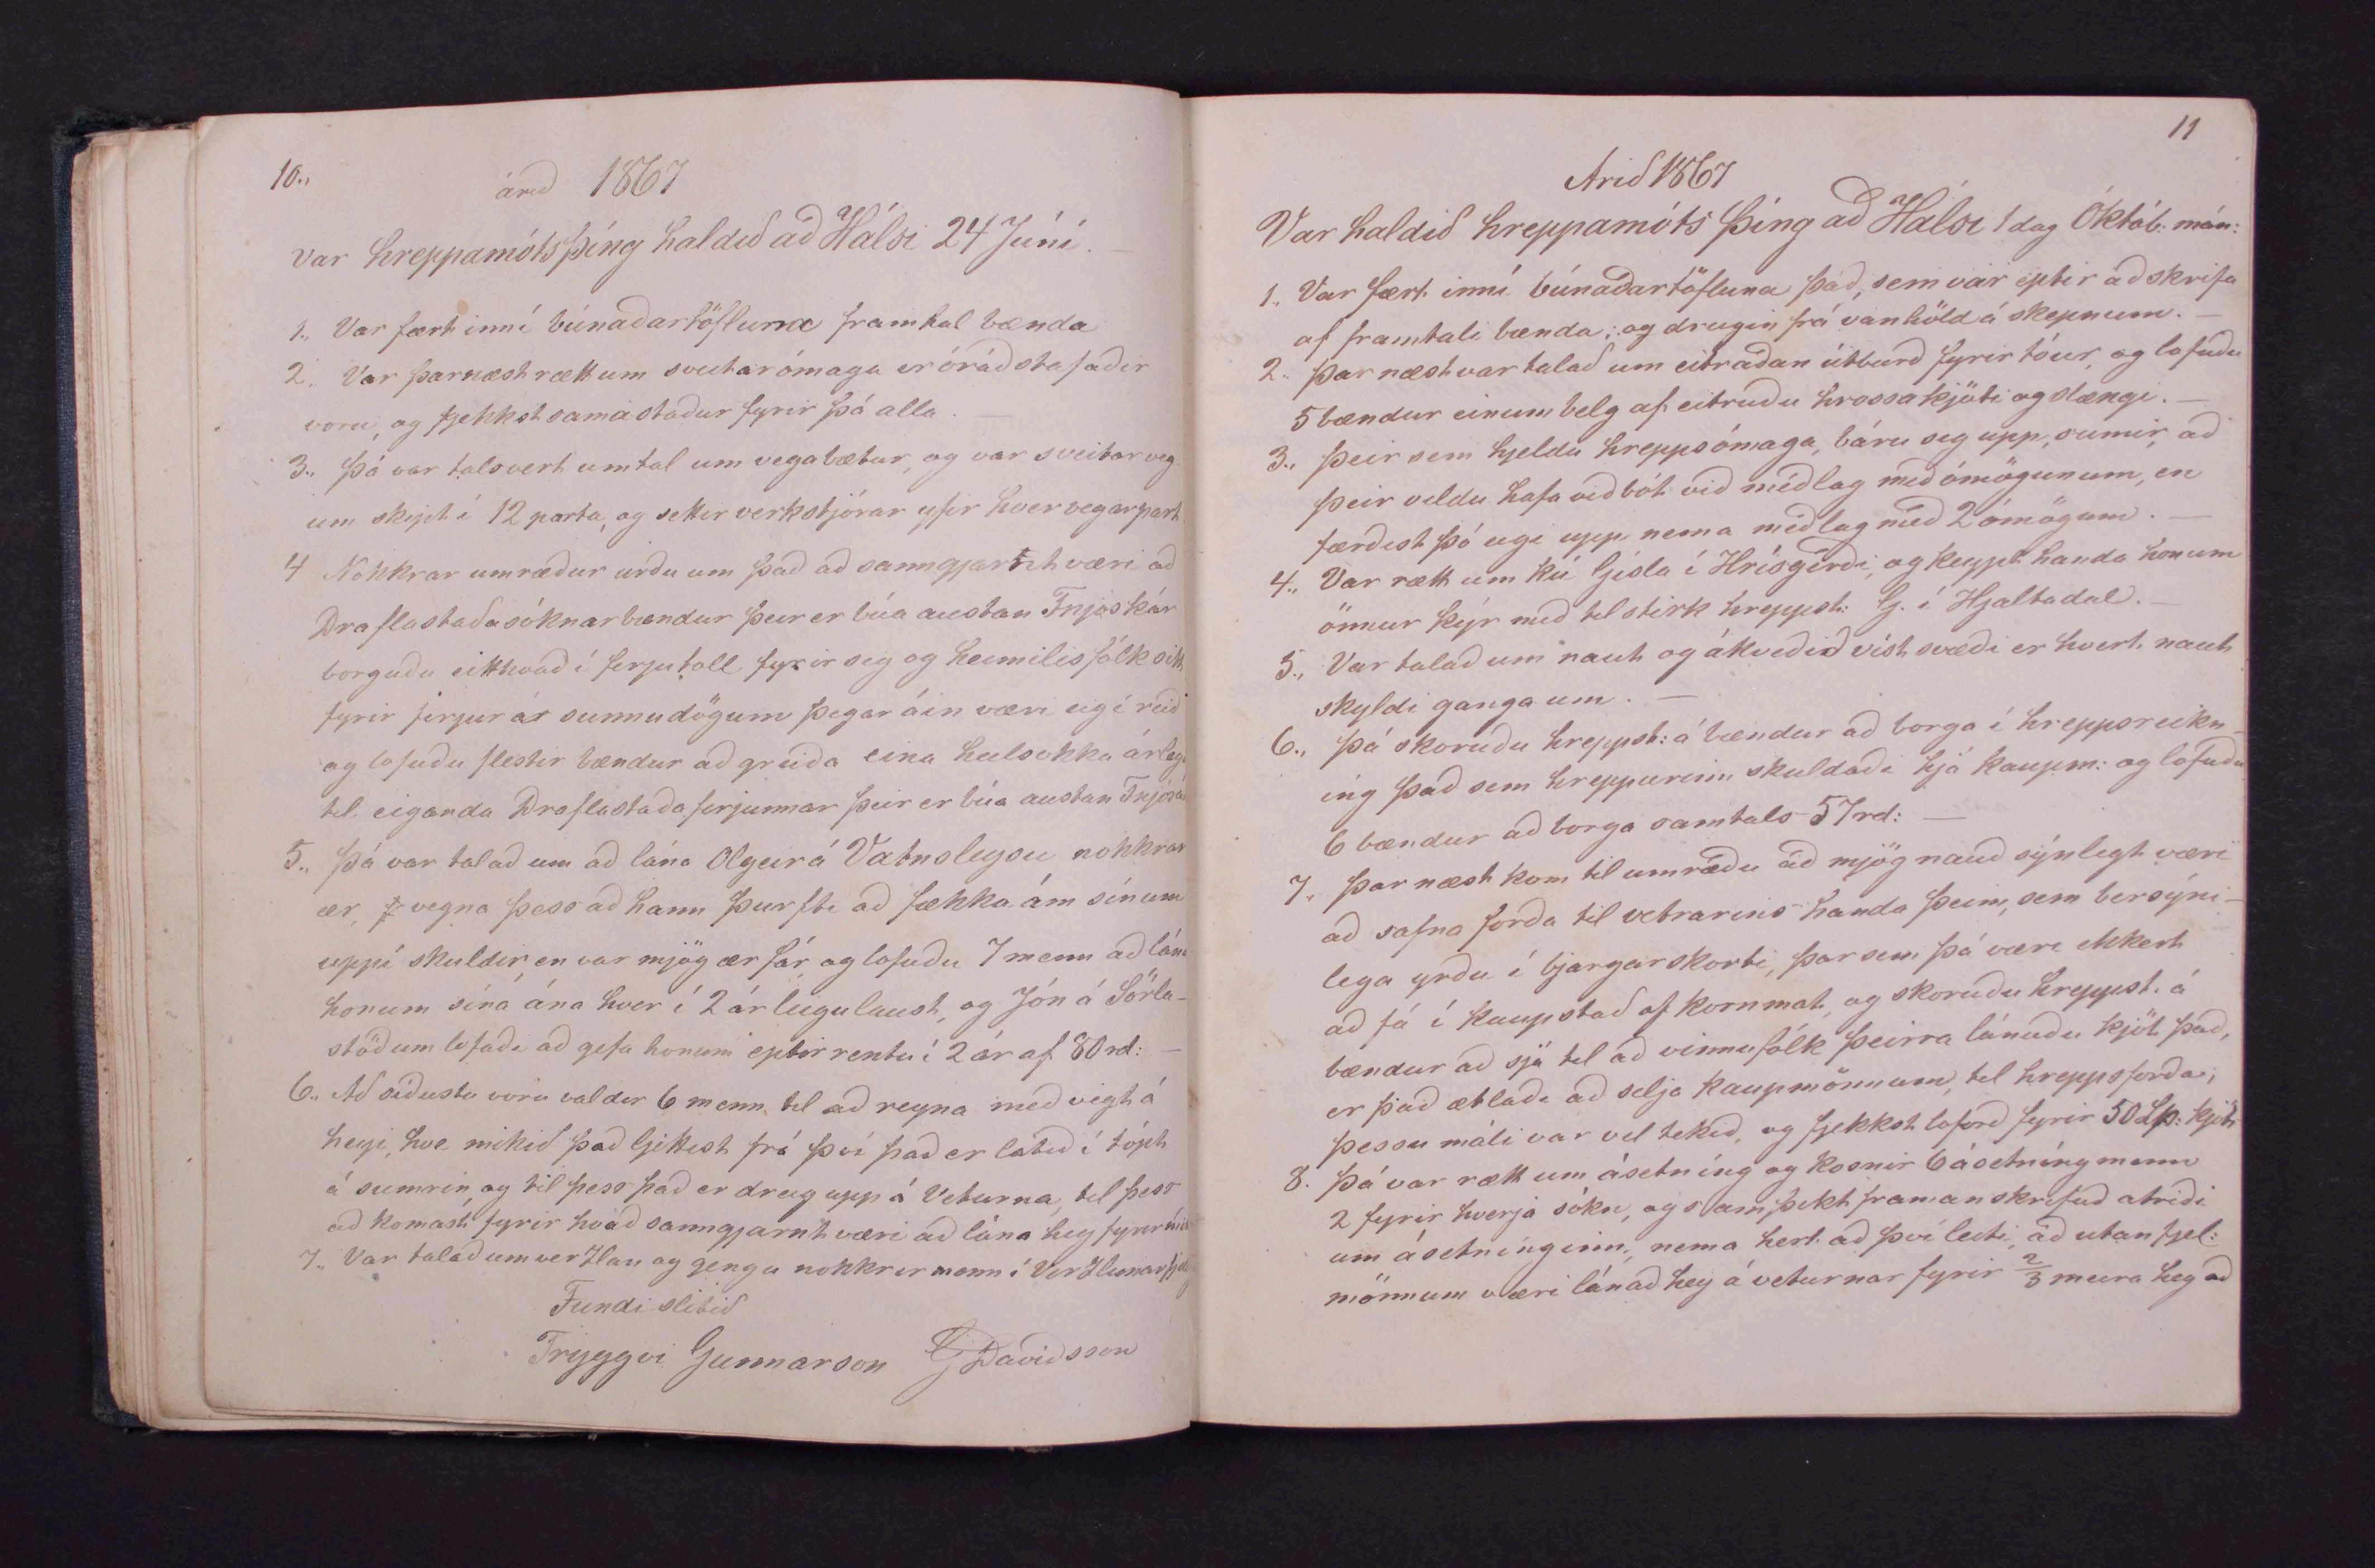 10.,
árið 1867
var hreppamótsþíng haldið að Hálsi 24 Júní. —
1., Var fært inní búnaðartöfluna framtal bænda
2., Var þarnæst rætt um sveitarómaga er óráðstafaðir
voru, og fjekkst samastaður fyrir þá alla. —
3., Þá var talsvert umtal um vegabætur, og var sveitarveg
um skipt í 12 parta, og settir verkstjórar yfir hver vegarpart
4 Nokkrar umræður urðu um það að sanngjarnt væri að
Draflastaðasóknarbændur þeir er búa austan Fnjóskár
borguðu eitthvað í ferjutoll fyrir sig og heimilisfólk sitt
fyrir ferjur á sunnudögum þegar áin væri eigi reið
og lofuðu flestir bændur að greiða eina heilsokka árlega
til eiganda Draflastaðaferjunnar þeir er búa austan Fnjósk
5., Þá var talað um að lána Olgeir á Vatnsleysu nokkrar
ær, vegna þess að hann þurfti að fækka ám sínum
uppí skuldir, en var mjög ær fár, og lofuðu 7 menn að lána
honum sína ána hver í 2 ár leigulaust, og Jón á Sörla-
stöðum lofaði að gefa honum eptir rentu í 2 ár af 80 rd: —
6., Að síðustu voru valdir 6 menn til að reyna með vigt á
heyi, hve mikið það ljettist frá því það er látið í tópt
á sumrin, og til þess það er dreg upp á Veturna, til þess
að komast fyrir hvað sanngjarnt væri að lána hey fyrir
7., Var talað um verzlan og gengu nokkrir menn í Verzlunarfjel
Fundi slitið
Tryggvi Gunnarson G Davíðsson
11
Árið 1867
Var haldið hreppamóts þíng að Hálsi 1 dag Októb: mán:
1., Var fært inní búnaðartöfluna það, sem var eptir að skrifa
af framtali bænda; og dregin frá vanhöld á skepnum. —
2., Þar næst var talað um eitraðan útburð fyrir tóur, og lofuðu
5 bændur einum belg af eitruðu hrossakjöti og slængi. —
3., Þeir sem hjeldu hreppsómaga, báru sig upp, sumir, að
þeir vildu hafa viðbót við meðlag með ómögunum, en
færðist þó eigi upp nema meðlag með 2 ómögum. —
4., Var rætt um kú Gísla í Hrísgerði, og keypt handa honum
önnur kýr með tilstirk hreppst: G. í Hjaltadal. —
5., Var talað um naut og ákveðið víst svæði er hvert naut
skyldi ganga um. —
6., Þá skoruðu hreppst: á bændur að borga í hreppsreikn-
íng það sem hreppurinn skuldaði hjá kaupm: og lofuðu
6 bændur að borga samtals 57 rd: —
7., Þar næst kom til umræðu að mjög nauðsýnlegt væri
að safna forða til vetrarins handa þeim, sem bersýni-
lega yrðu í bjargarskorti, þar sem þá væri ekkert
að fá í kaupstað af kornmat, og skoruðu hreppst. á
bændur að sjá til að vinnufólk þeirra lánuðu kjöt það,
er það ætlaði að selja kaupmönnum, til hreppsforða;
þessu máli var vel tekið, og fjekkst loforð fyrir 50 Lp: kjöt
8. Þá var rætt um ásetníng og kosnir 6 ásetníngmenn
2 fyrir hverja sókn, og samþykt framanskrifuð atriði
um ásetnínginn, nema hert að því leiti, að utanfjel:
mönnum væri lánað hey á veturnar fyrir 2/3 meira hey að